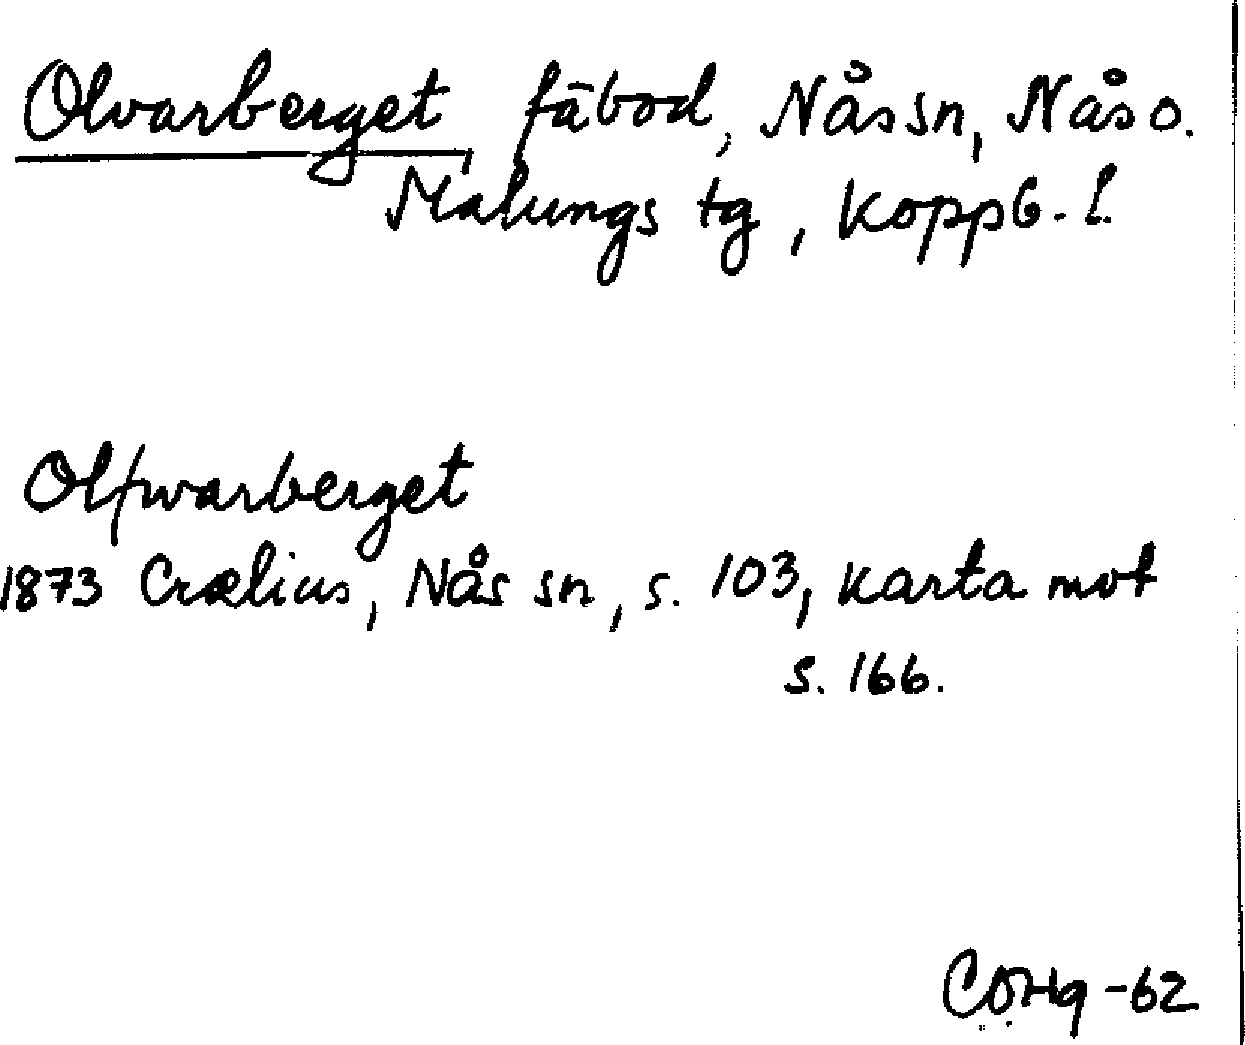 Olvarberget, fäbod, Nås sn, Nås o.
Malungs tg, Koppb. l.
Olfwarberget
1873 Crælius, Nås sn, s. 103, karta mot
s. 166.
-62